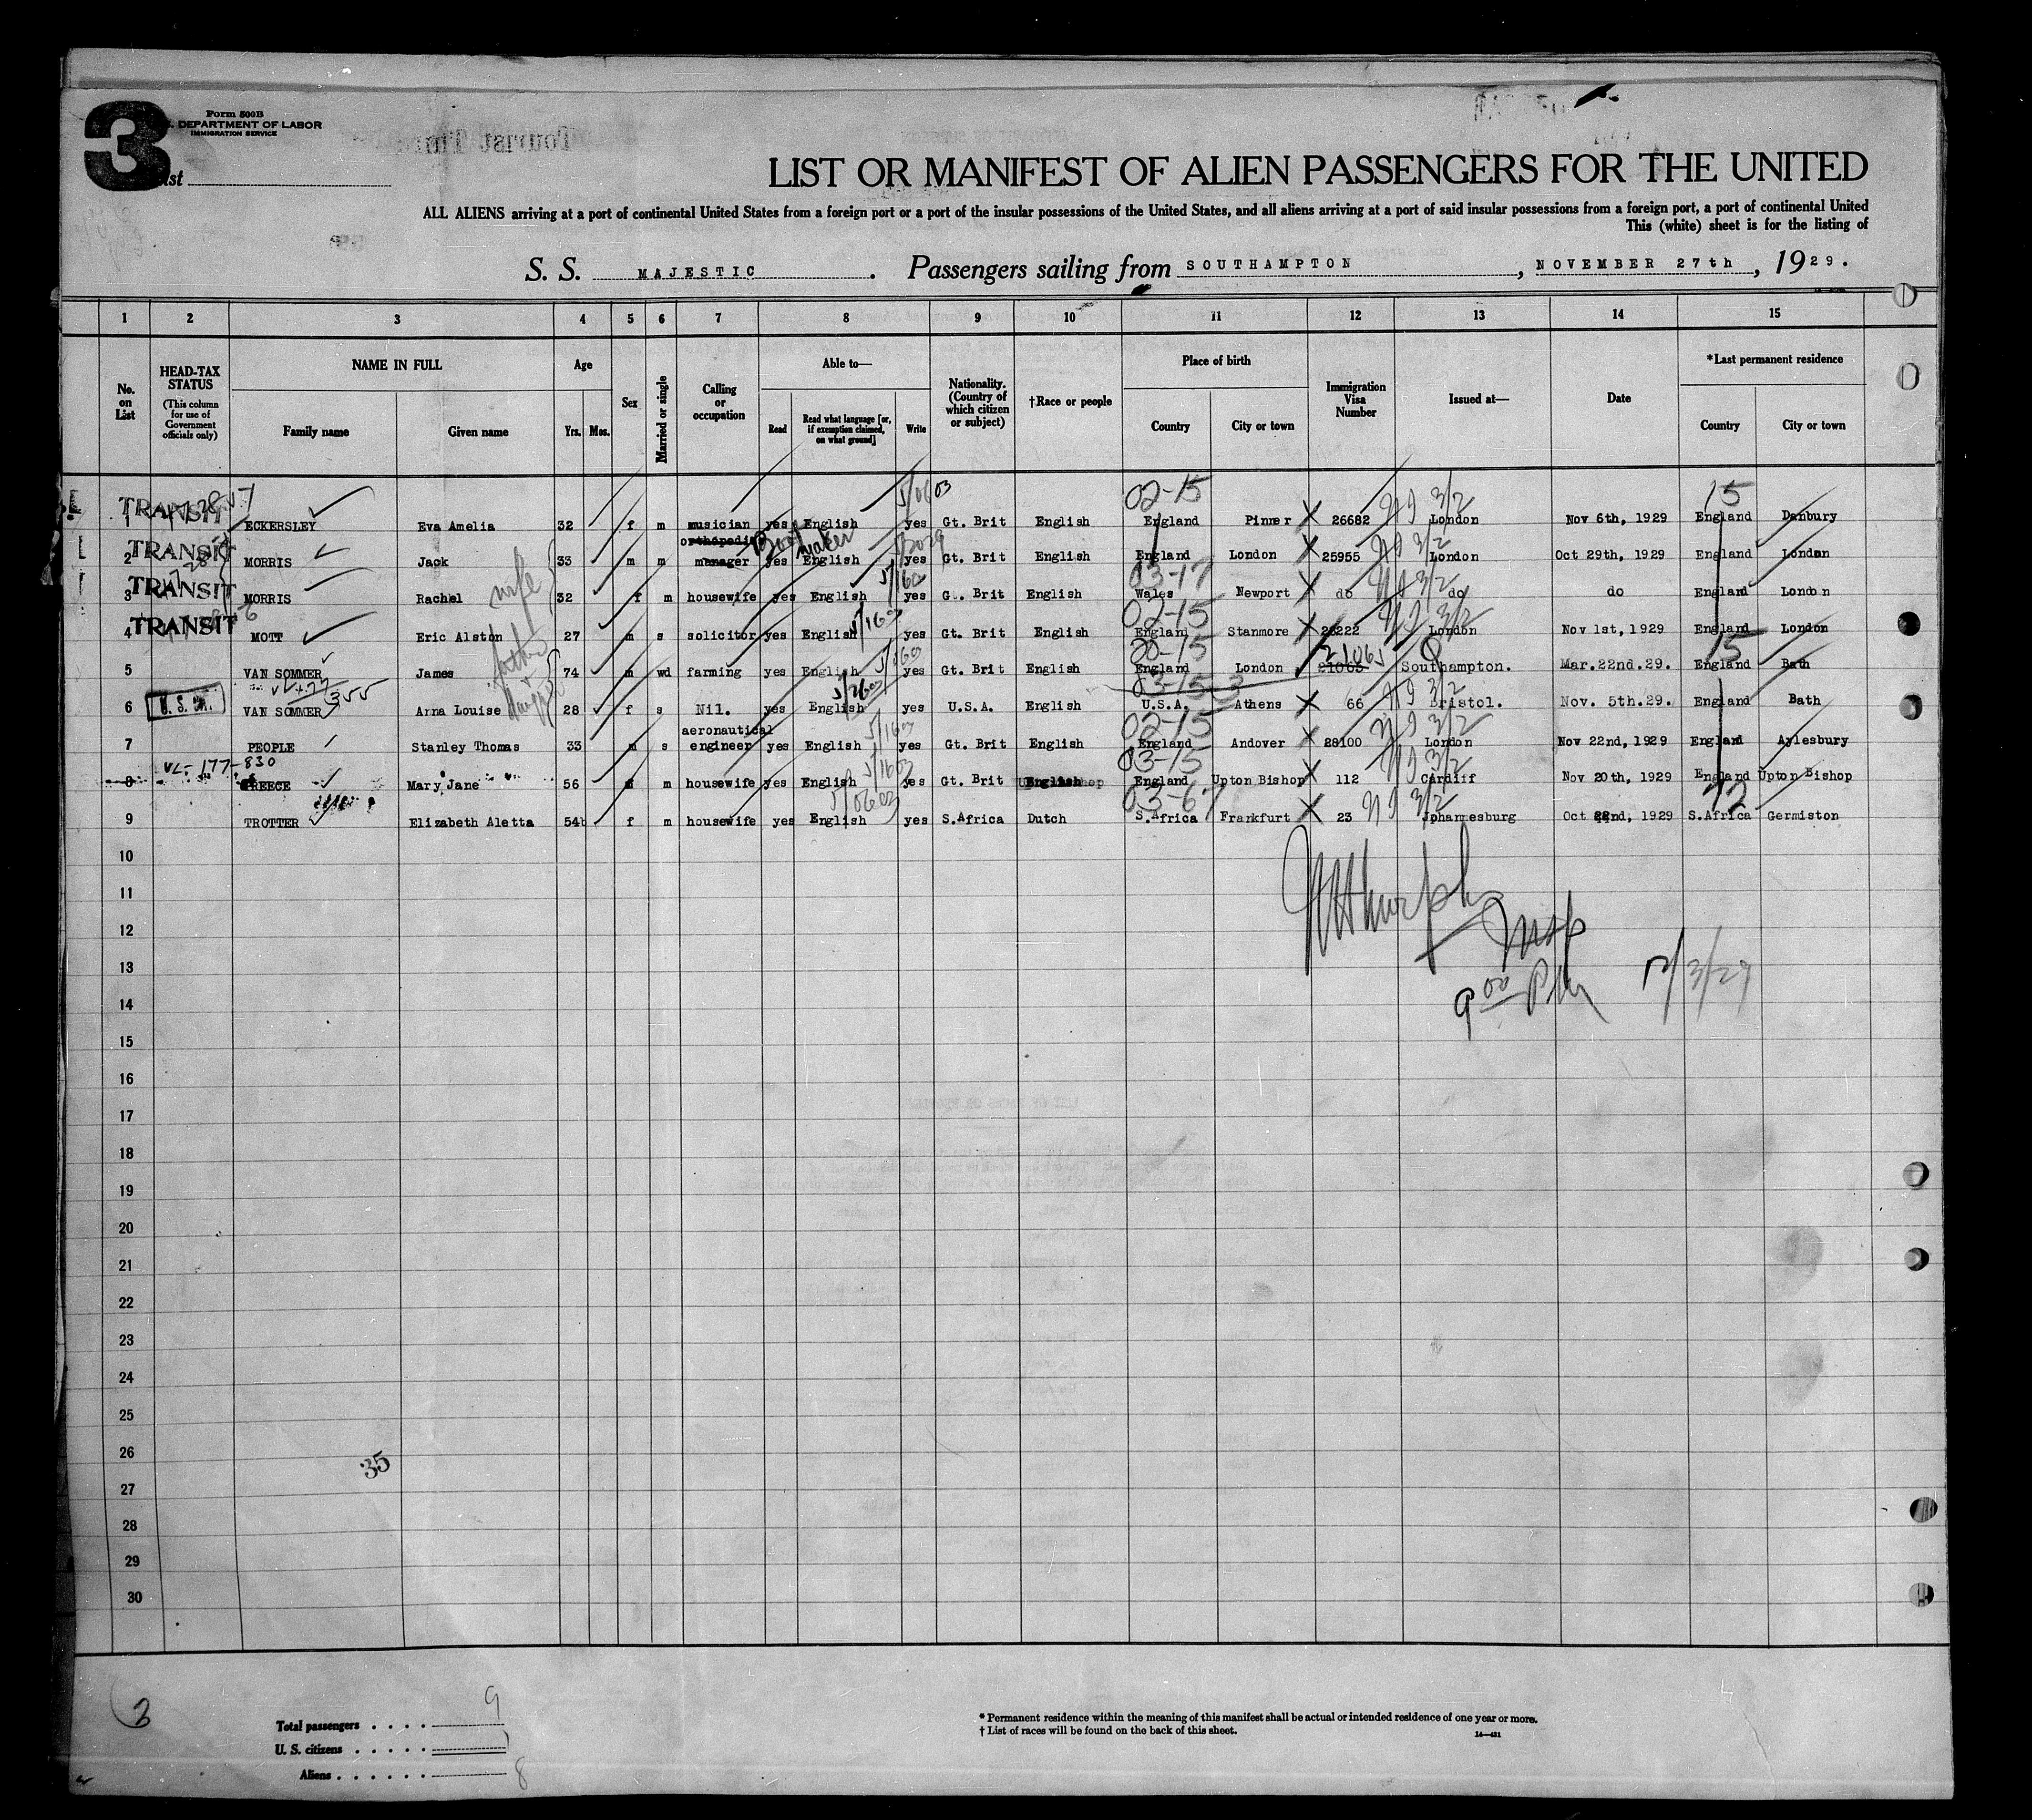 3
Form 500B
DEPARTMENT OF LABOR
IMMIGRATION SERVICE
Tourist
LIST OR MANIFEST OF ALIEN PASSENGERS FOR THE UNITED
ALL ALIENS arriving at a port of continental United States from a foreign port or a port of the insular possessions of the United States, and all aliens arriving at a port of said insular possessions from a foreign port, a port of continental United
This (white) sheet is for the listing of
S. S. MAJESTIC. Passengers sailing from SOUTHAMPTON, NOVEMBER 27th, 1929.
1 2 3 4 5 6 7 8 9 10 11 12 13 14 15
No. on List
HEAD-TAX STATUS (This column for use of Government officials only)
NAME IN FULL Family name Given name
Age Yrs. Mos.
Sex
Married or single
Calling or occupation
Able to— Read Read what language [or, if exemption claimed, on what ground] Write
Nationality. (Country of which citizen or subject)
†Race or people
Place of birth Country City or town
Immigration Visa Number
Issued at—
Date
*Last permanent residence Country City or town
02-15 15
1 TRANSIT ECKERSLEY Eva Amelia 32 f m musician yes English yes Gt. Brit English England Pinner 26682 London Nov 6th, 1929 England Danbury
orthopedic Boot maker
2 TRANSIT MORRIS Jack 33 m m manager yes English yes Gt. Brit English England London 25955 London Oct 29th, 1929 England London
03-17
3 TRANSIT MORRIS Rachel wife 32 f m housewife yes English yes G. Brit English Wales Newport do do do England London
02-15
4 TRANSIT MOTT Eric Alston 27 m s solicitor yes English yes Gt. Brit English England Stanmore London Nov 1st, 1929 England London
20-15 21065 15
5 VAN SOMMER James father 74 m wd farming yes English yes Gt. Brit English England London Southampton. Mar.22nd.29. England Bath
355 03-15-3
6 VAN SOMMER Anna Louise 28 f s Nil. yes English yes U.S.A. English U.S.A. Athens 66 Bristol. Nov. 5th.29. England Bath
02-15
aeronautical
7 PEOPLE Stanley Thomas 33 m s engineer yes English yes Gt. Brit English England Andover 28100 London Nov 22nd, 1929 England Aylesbury
VL- 177-830 03-15
8 PREECE Mary Jane 56 m housewife yes English yes Gt. Brit English England Upton Bishop 112 Cardiff Nov 20th, 1929 England Upton Bishop
03-67 72
9 TROTTER Elizabeth Aletta 54 f m housewife yes English yes S.Africa Dutch S.Africa Frankfurt 23 Johannesburg Oct 22nd, 1929 S.Africa Germiston
10
11
12
13
9 00 PM 12/3/29
14
15
16
17
18
19
20
21
22
23
24
25
26
35
27
28
29
30
3
Total passengers . . . . 9
U. S. citizens . . . . . 1
Aliens . . . . . . 8
* Permanent residence within the meaning of this manifest shall be actual or intended residence of one year or more.
† List of races will be found on the back of this sheet.
14—421